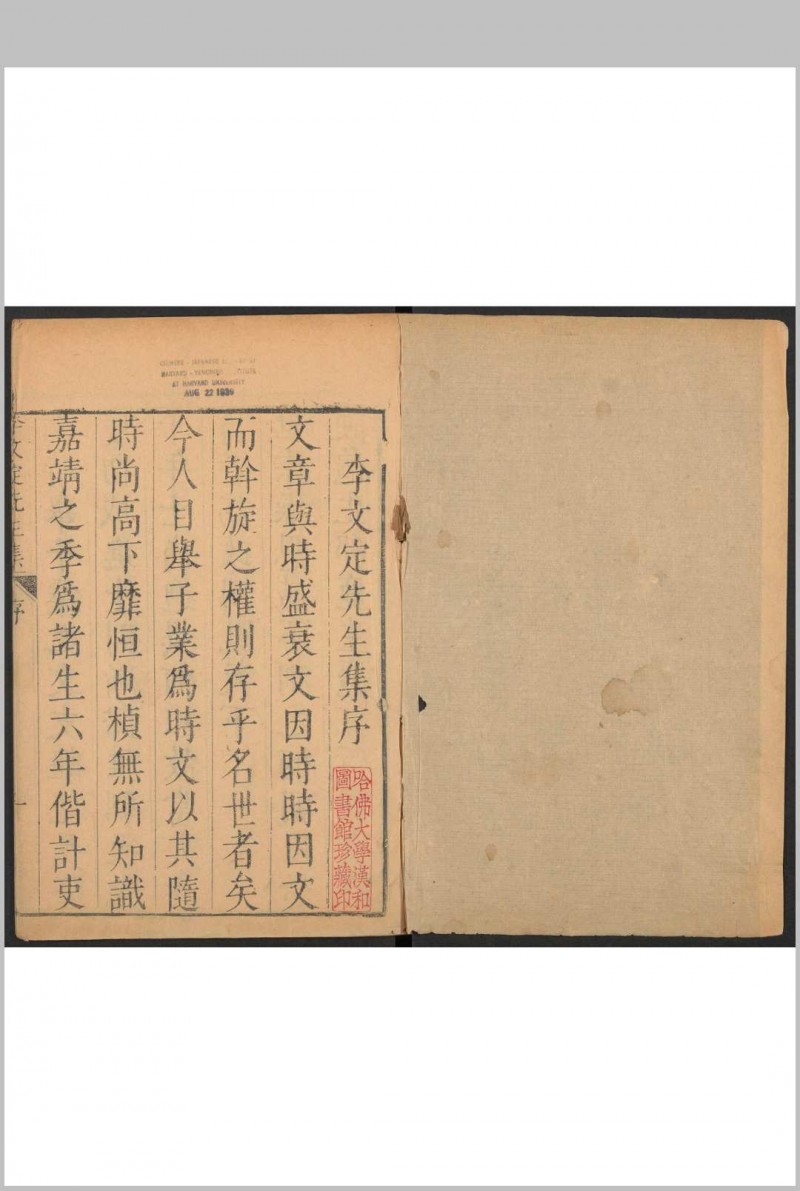 李文定先生集序
文章與時盛衰文因時時因文
而斡旋之權則存乎名世者矣
今人目舉子業爲時文以其隨
時尚高下靡恒也楨無所知識
嘉靖之季爲諸生六年偕計吏
李文定先生集
序
一
哈佛大學漢和
圖書館珍藏印
AT HARVARD UNIVERSITY
AUG 22 1939